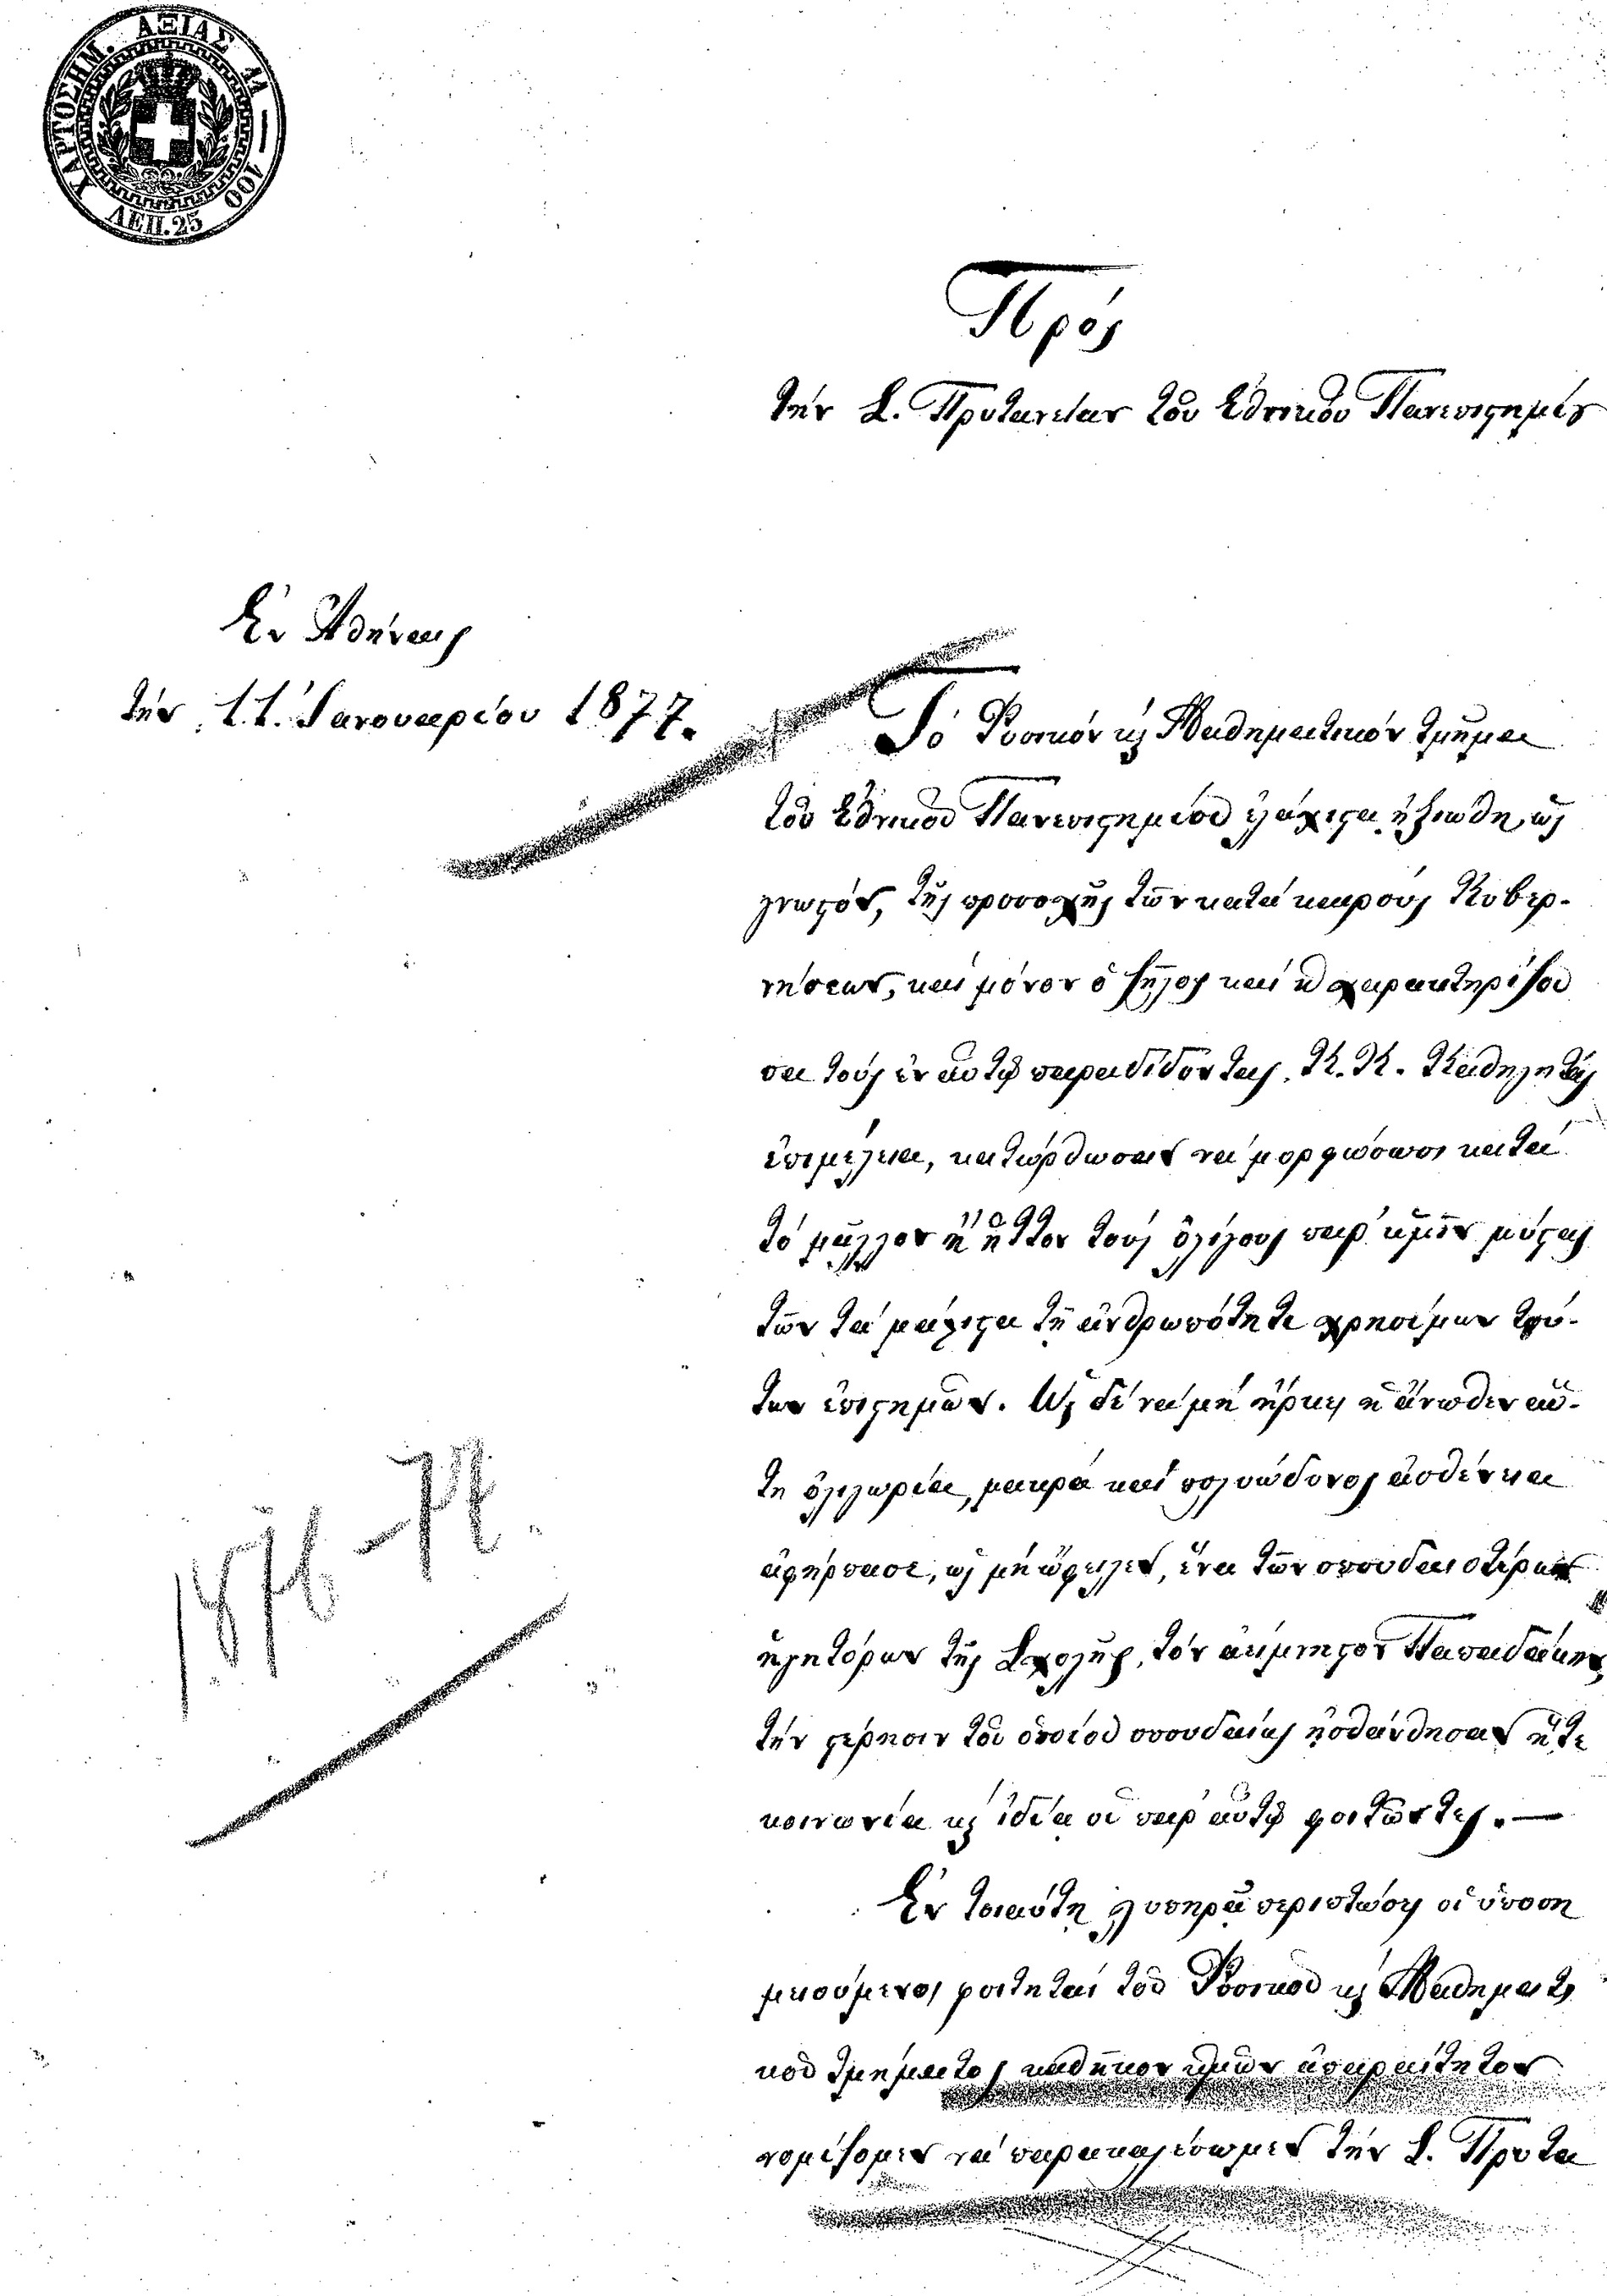 ΧΑΡΤΟΣΗΜ. ΑΞΙΑΣ 11—100
ΛΕΠ. 25
Πρός
τήν Σ. Πρυτανείαν τοῦ Ἐθνικοῦ Πανεπιστημίου
Ἐν Ἀθήναις
τήν 11 Ἰανουαρίου 1877.
Τό Φυσικόν καί Μαθηματικόν τμῆμα
τοῦ Ἐθνικοῦ Πανεπιστημίου ἐλάχιστα ἠξιώθη, ὡς
γνωστόν, τῆς προσοχῆς τῶν κατά καιρούς Κυβερ-
νήσεων, καί μόνον ὁ ζῆλος καί ἡ χαρακτηρίζου
σα τούς ἐν αὐτῷ παραδίδοντας Κ.Κ. Καθηγητάς
ἐπιμέλεια, κατώρθωσαν νά μορφώσωσι κατά
τό μᾶλλον ἤ ἧττον τούς ὀλίγους παρ' ἡμῖν μύστας
τῶν τά μάλιστα τῇ ἀνθρωπότητι χρησίμων τού-
των ἐπιστημῶν. Ὡς δέ νά μή ἤρκει ἡ ἄνωθεν αὕ-
τη ὀλιγωρία, μακρά καί πολυώδυνος ἀσθένεια
ἀφήρπασε, ὡς μή ὤφειλεν, ἕνα τῶν σπουδαιοτέρων
ἡγητόρων τῆς Σχολῆς, τόν ἀείμνηστον Παπαδάκην,
τήν στέρησιν τοῦ ὁποίου σπουδαίως ᾐσθάνθησαν ἥ τε
κοινωνία καί ἰδίᾳ οἱ παρ' αὐτῷ φοιτῶντες.—
Ἐν τοιαύτῃ λυπηρᾷ περιστάσει οἱ ὑποση
μειούμενοι φοιτηταί τοῦ Φυσικοῦ καί Μαθηματι
κοῦ τμήματος καθῆκον ἡμῶν ἀπαραίτητον
νομίζομεν νά παρακαλέσωμεν τήν Σ. Πρυτα
1876-77.